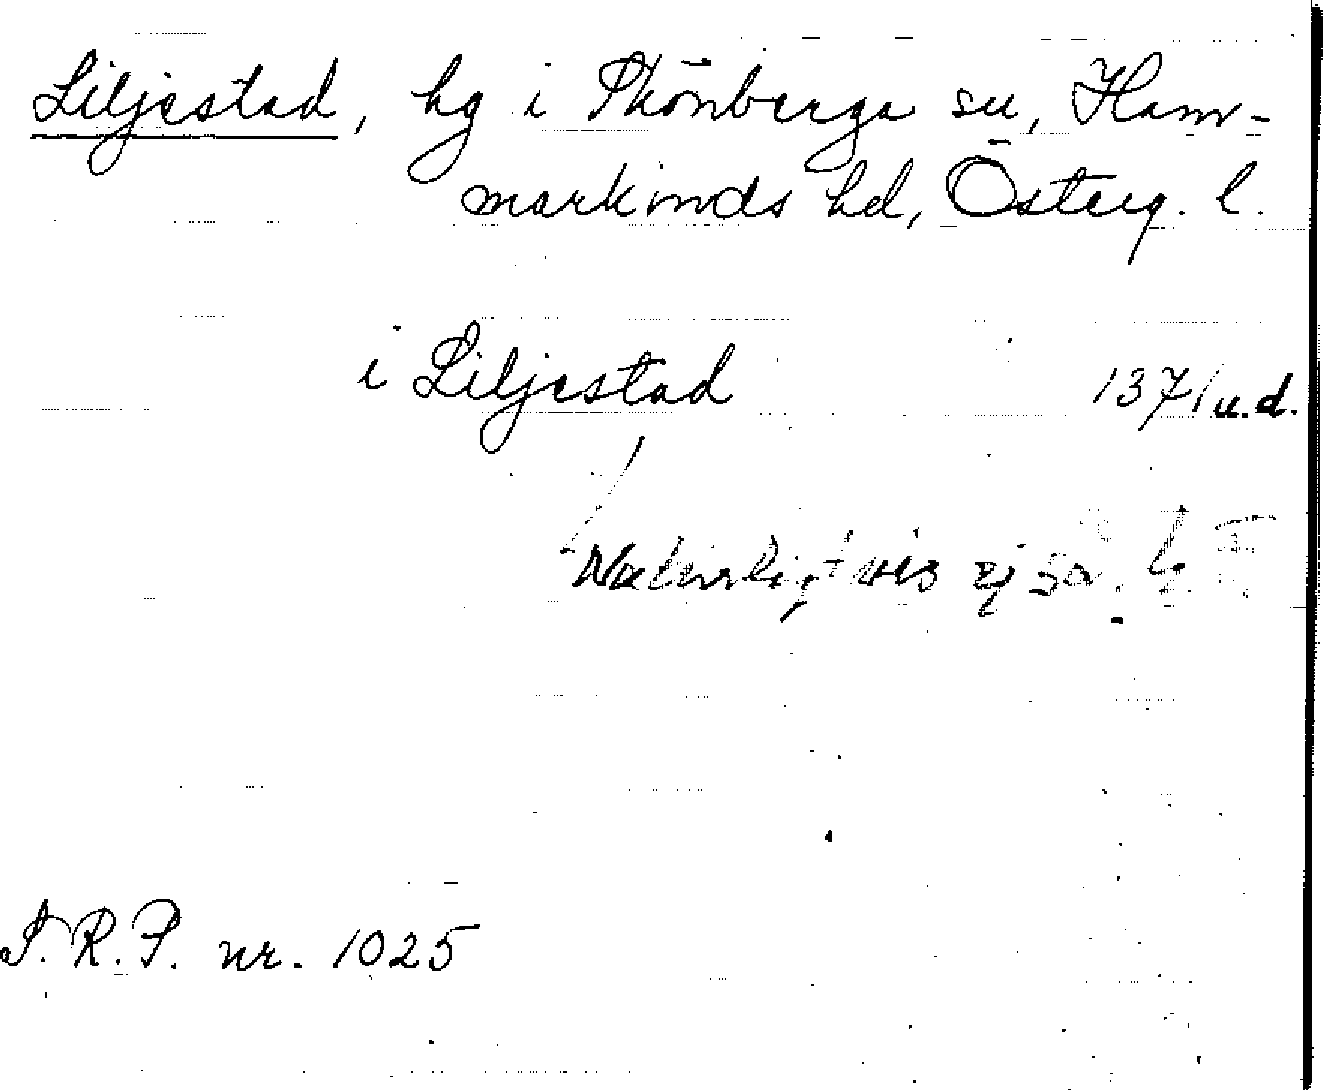 Liljestad, hg i Skönberga sn, Ham-
markinds hd, Österg. l.
i Liljestad 1371 u.d.
Naturligtvis ej så.
S.R.P. nr. 1025